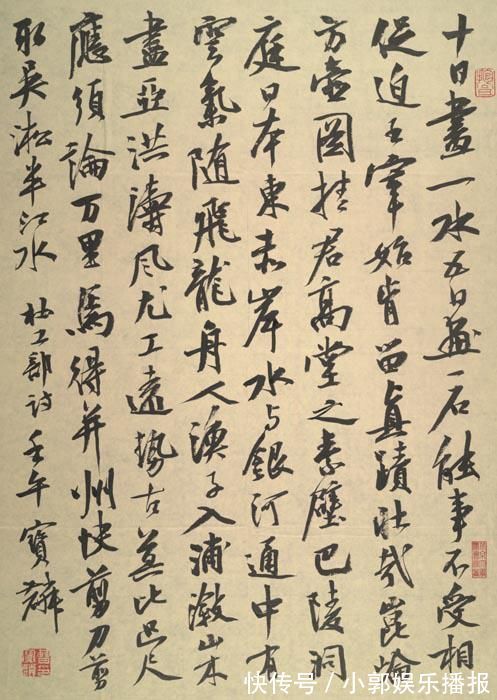 十日畫一水五日画一石能事不受相
促迫王宰始肯留真蹟壯哉崑崙
方壺圖挂君高堂之素壁巴陵洞
庭日本東赤岸水与銀河通中有
雲氣随飛龍舟人漁子入浦漵山木
盡亞洪濤風尤工遠勢古莫比咫尺
應須論万里焉得并州快剪刀剪
取吴淞半江水 杜工部詩 壬午寶麟
快传号/小郭娱乐播报